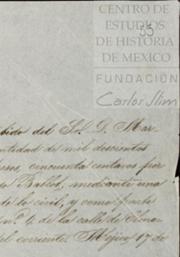 CENTRO DE
ESTUDIOS
DE HISTORIA
DE MEXICO
FUNDACIÓN
Carlos Slim
bido del S.D. Mar
ntidad de mil doscientos
cincuenta centavos por
Ballot, mediante una
de la civil, y como
nº 6 de la calle de
el corriente. Méjico 17 de